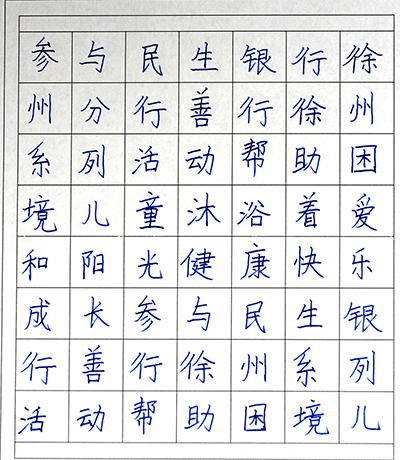 参与民生银行徐
州分行善行徐州
系列活动帮助困
境儿童沐浴着爱
和阳光健康快乐
成长参与民生银
行善行徐州系列
活动帮助困境儿